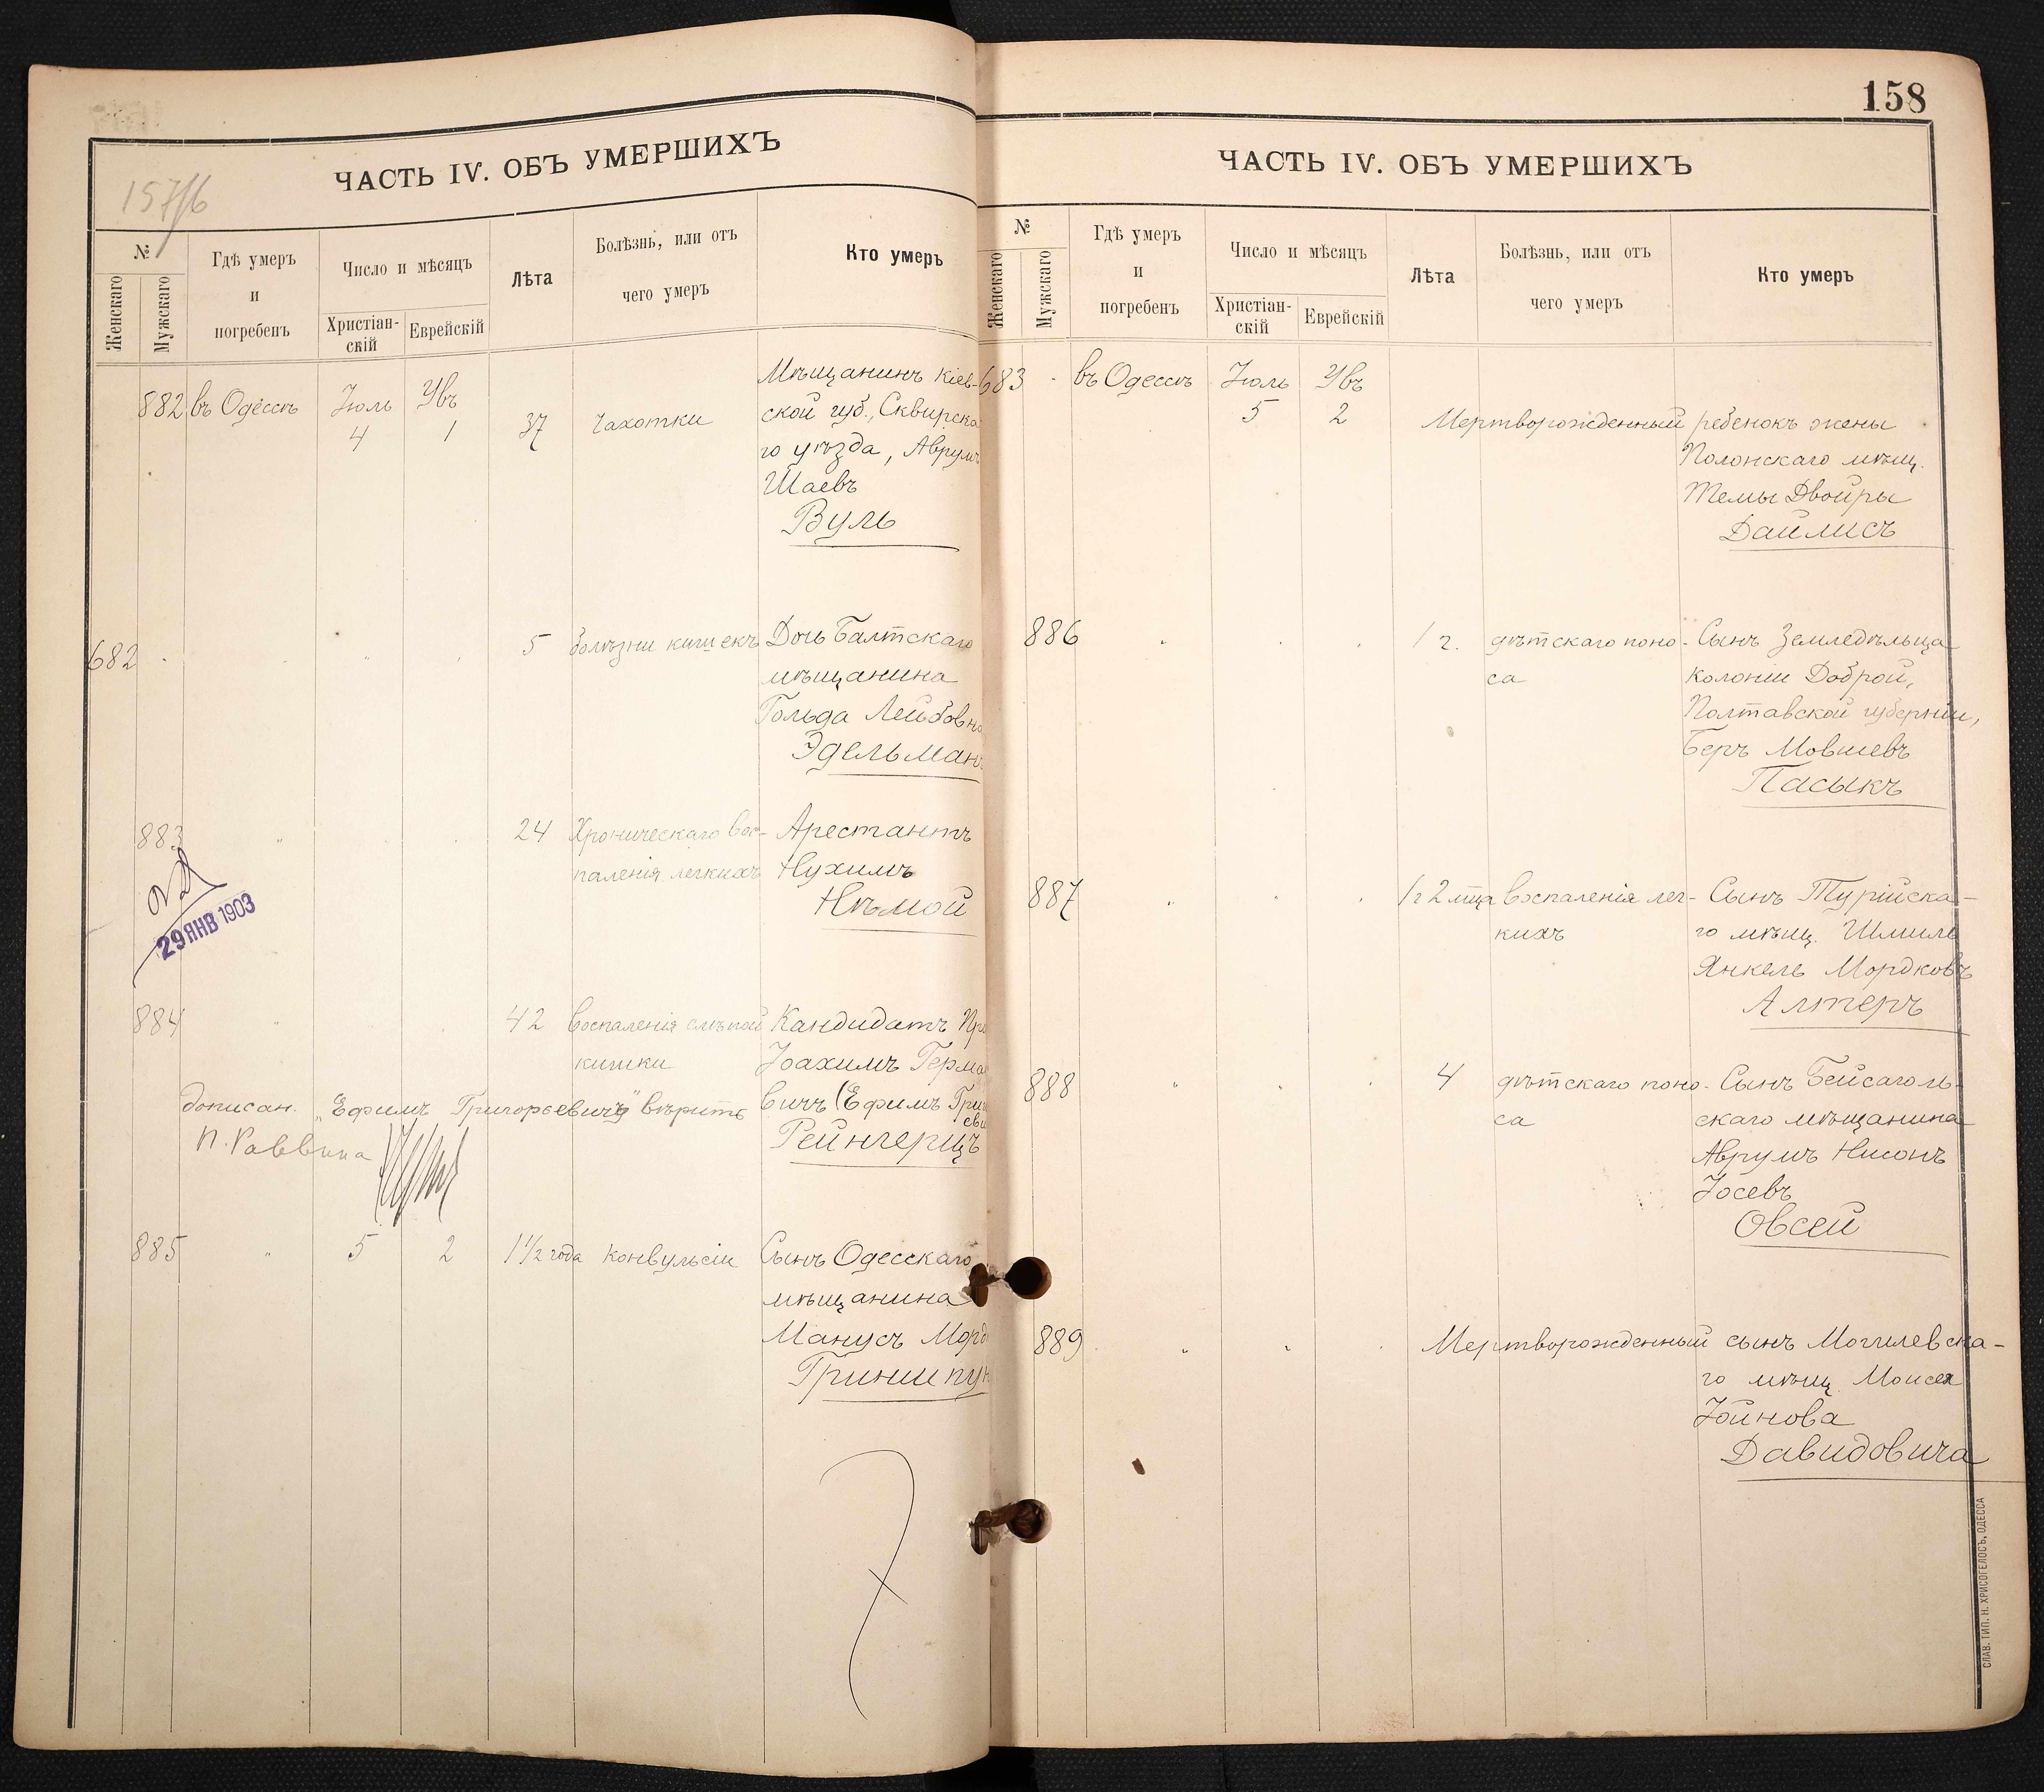 157/б
ЧАСТЬ IV. ОБЪ УМЕРШИХЪ
№
Женскаго
Мужскаго
Гдѣ умеръ
и
погребенъ
Число и мѣсяцъ
Христіан-
скій
Еврейскій
Лѣта
Болѣзнь, или отъ
чего умеръ
Кто умеръ
882 въ Одессѣ Іюль Увъ
4 1 37 Чахотки
Мѣщанинъ Кіев-
ской губ., Сквирска
го уѣзда, Аврумъ
Шаевъ
Вуль
682 5 болѣзни кишекъ Дочь Балтскаго
мѣщанина
Гольда Лейбовна
Эдельманъ
883 " 24 Хроническаго вос- Арестантъ
паленія легкихъ Нухимъ
Нѣмой
29 ЯНВ 1903
884 " 42 Воспаленія слѣпой Кандидатъ Пра
кишки Іоахимъ Герма
дописан. "Ефимъ Григорьевичъ" вѣрить вичъ (Ефимъ Григ
еви
П. Раввина Рейнгерцъ
885 " 5 2 1 1/2 года Конвульсіи Сынъ Одесскаго
мѣщанина
Манусъ Морд
Гриншпун
158
ЧАСТЬ IV. ОБЪ УМЕРШИХЪ
№
Женскаго
Мужскаго
Гдѣ умеръ
и
погребенъ
Число и мѣсяцъ
Христіан-
скій
Еврейскій
Лѣта
Болѣзнь, или отъ
чего умеръ
Кто умеръ
683 въ Одессѣ Іюль Увъ
5 2 Мертворожденный ребенокъ жены
Полонскаго мѣщ.
Темы Двойры
Даймисъ
886 " 1 г. дѣтскаго поно- Сынъ Земледѣльца
са колоніи Доброй,
Полтавской губерніи,
Беръ Мовшевъ
Пасыкъ
887 " 1 г 2 мца воспаленія лег- Сынъ Турійска-
кихъ го мѣщ. Шмиль
Янкель Мордковъ
Алтеръ
888 " 4 дѣтскаго поно- Сынъ Бейсаголь-
са скаго мѣщанина
Аврумъ Нисонъ
Іосевъ
Овсей
889 " Мертворожденный сынъ Могилевска-
го мѣщ. Моисея
Іойнова
Давидовича
СЛАВ. ТИП. Н. ХРИСОГЕЛОСЪ, ОДЕССА